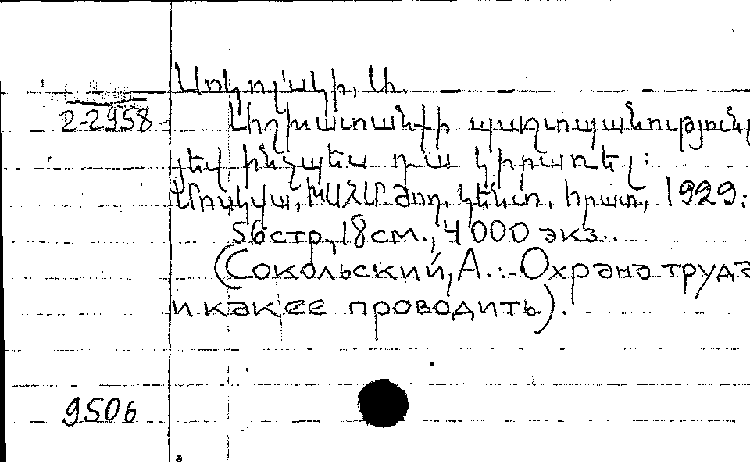 Սոկոլսկի, Ա.
2-2958 Աշխատանքի պաշտպանությունը
յեվ ինչպես դա կիրառել:
Մոսկվա, ԽՍՀՄ ժող. կենտ. հրատ., 1929:
56 стр., 18 см., 4000 экз.
(Сокольский, А. :- Охрана труда
и как ее проводить).
9506